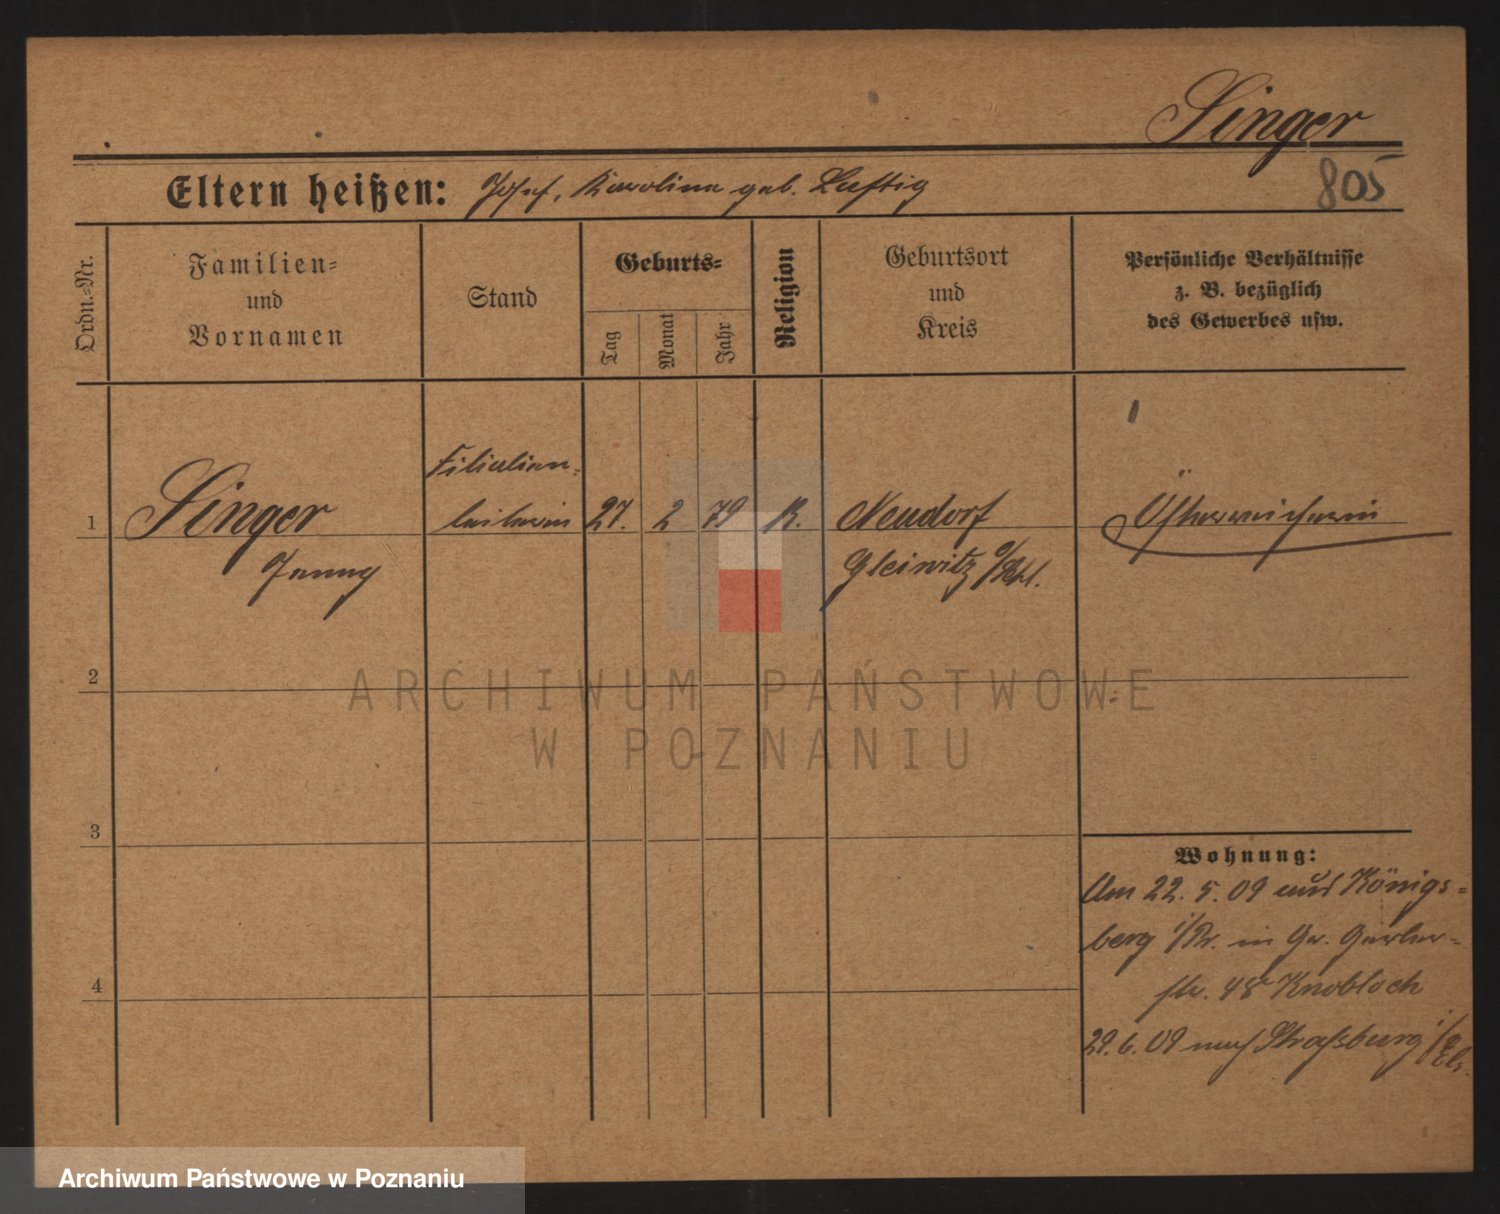 Singer
805
Eltern heißen: Josef, Karoline geb. Luftig
Ordn.-Nr.
Familien- und Vornamen
Stand
Geburts-
Tag
Monat
Jahr
Religion
Geburtsort und Kreis
Persönliche Verhältnisse z. B. bezüglich des Gewerbes usw.
1
Singer
Jenny
Filialen-
leiterin
27. 2 79
K.
Neudorf
Gleiwitz O/Schl.
Österreicherin
2
3
4
ARCHIWUM PAŃSTWOWE
W POZNANIU
Wohnung:
Am 22. 5. 09 aus Königs-
berg i/Pr. in Gr. Gerber-
str. 48 Knobloch
29. 6. 09 nach Straßburg i/Els.
Archiwum Państwowe w Poznaniu